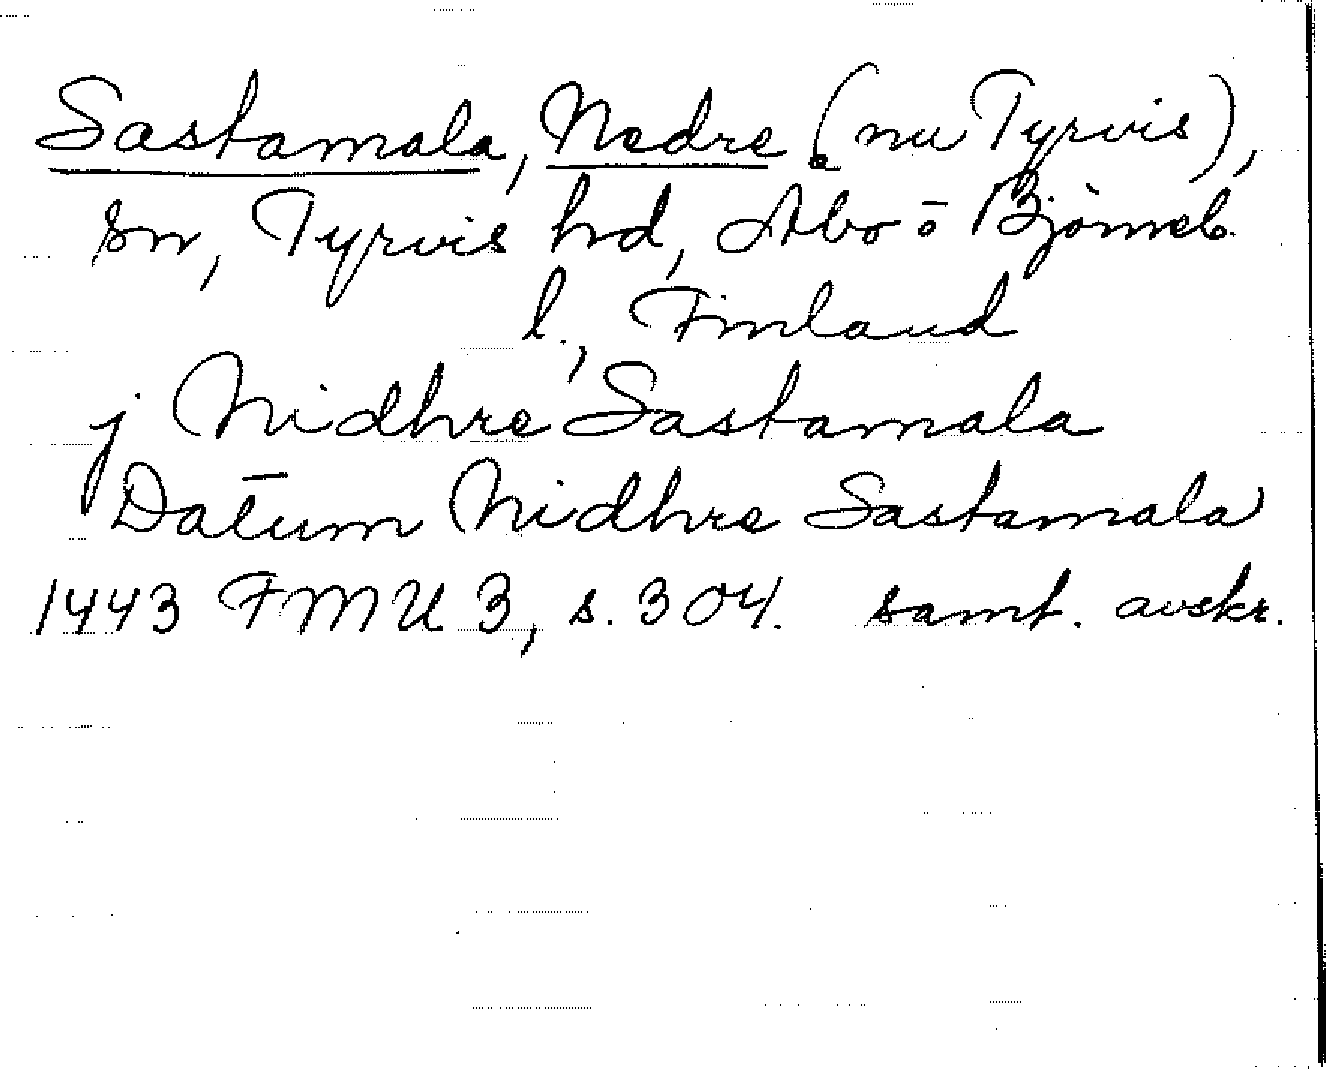 Sastamala, Nedre (nu Tyrvis),
sn, Tyrvis hd, Åbo ō Björneb.
l., Finland
j Nidhre Sastamala
Datūm Nidhre Sastamala
1443 FMU 3, s. 304. samt. avskr.